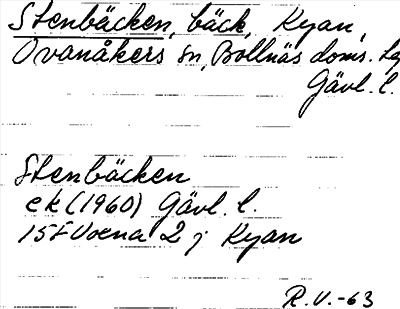 Stenbäcken, bäck, Kyan,
Ovanåkers sn, Bollnäs doms. lag
Gävl. l.
Stenbäcken
ek (1960) Gävl. l.
15F Voxna 2 j Kyan
R.V.-63